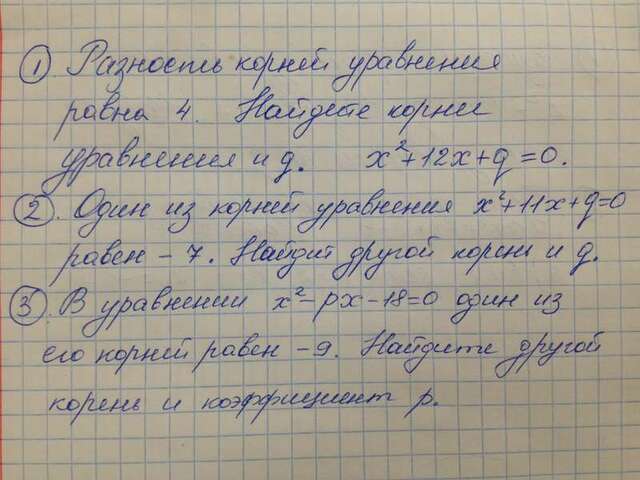 ① Разность корней уравнения
равна 4. Найдите корни
уравнения и q. x²+12x+q=0.
②. Один из корней уравнения x²+11x+q=0
равен -7. Найдит другой корень и q.
③. В уравнении x²-px-18=0 один из
его корней равен -9. Найдите другой
корень и коэффициент p.